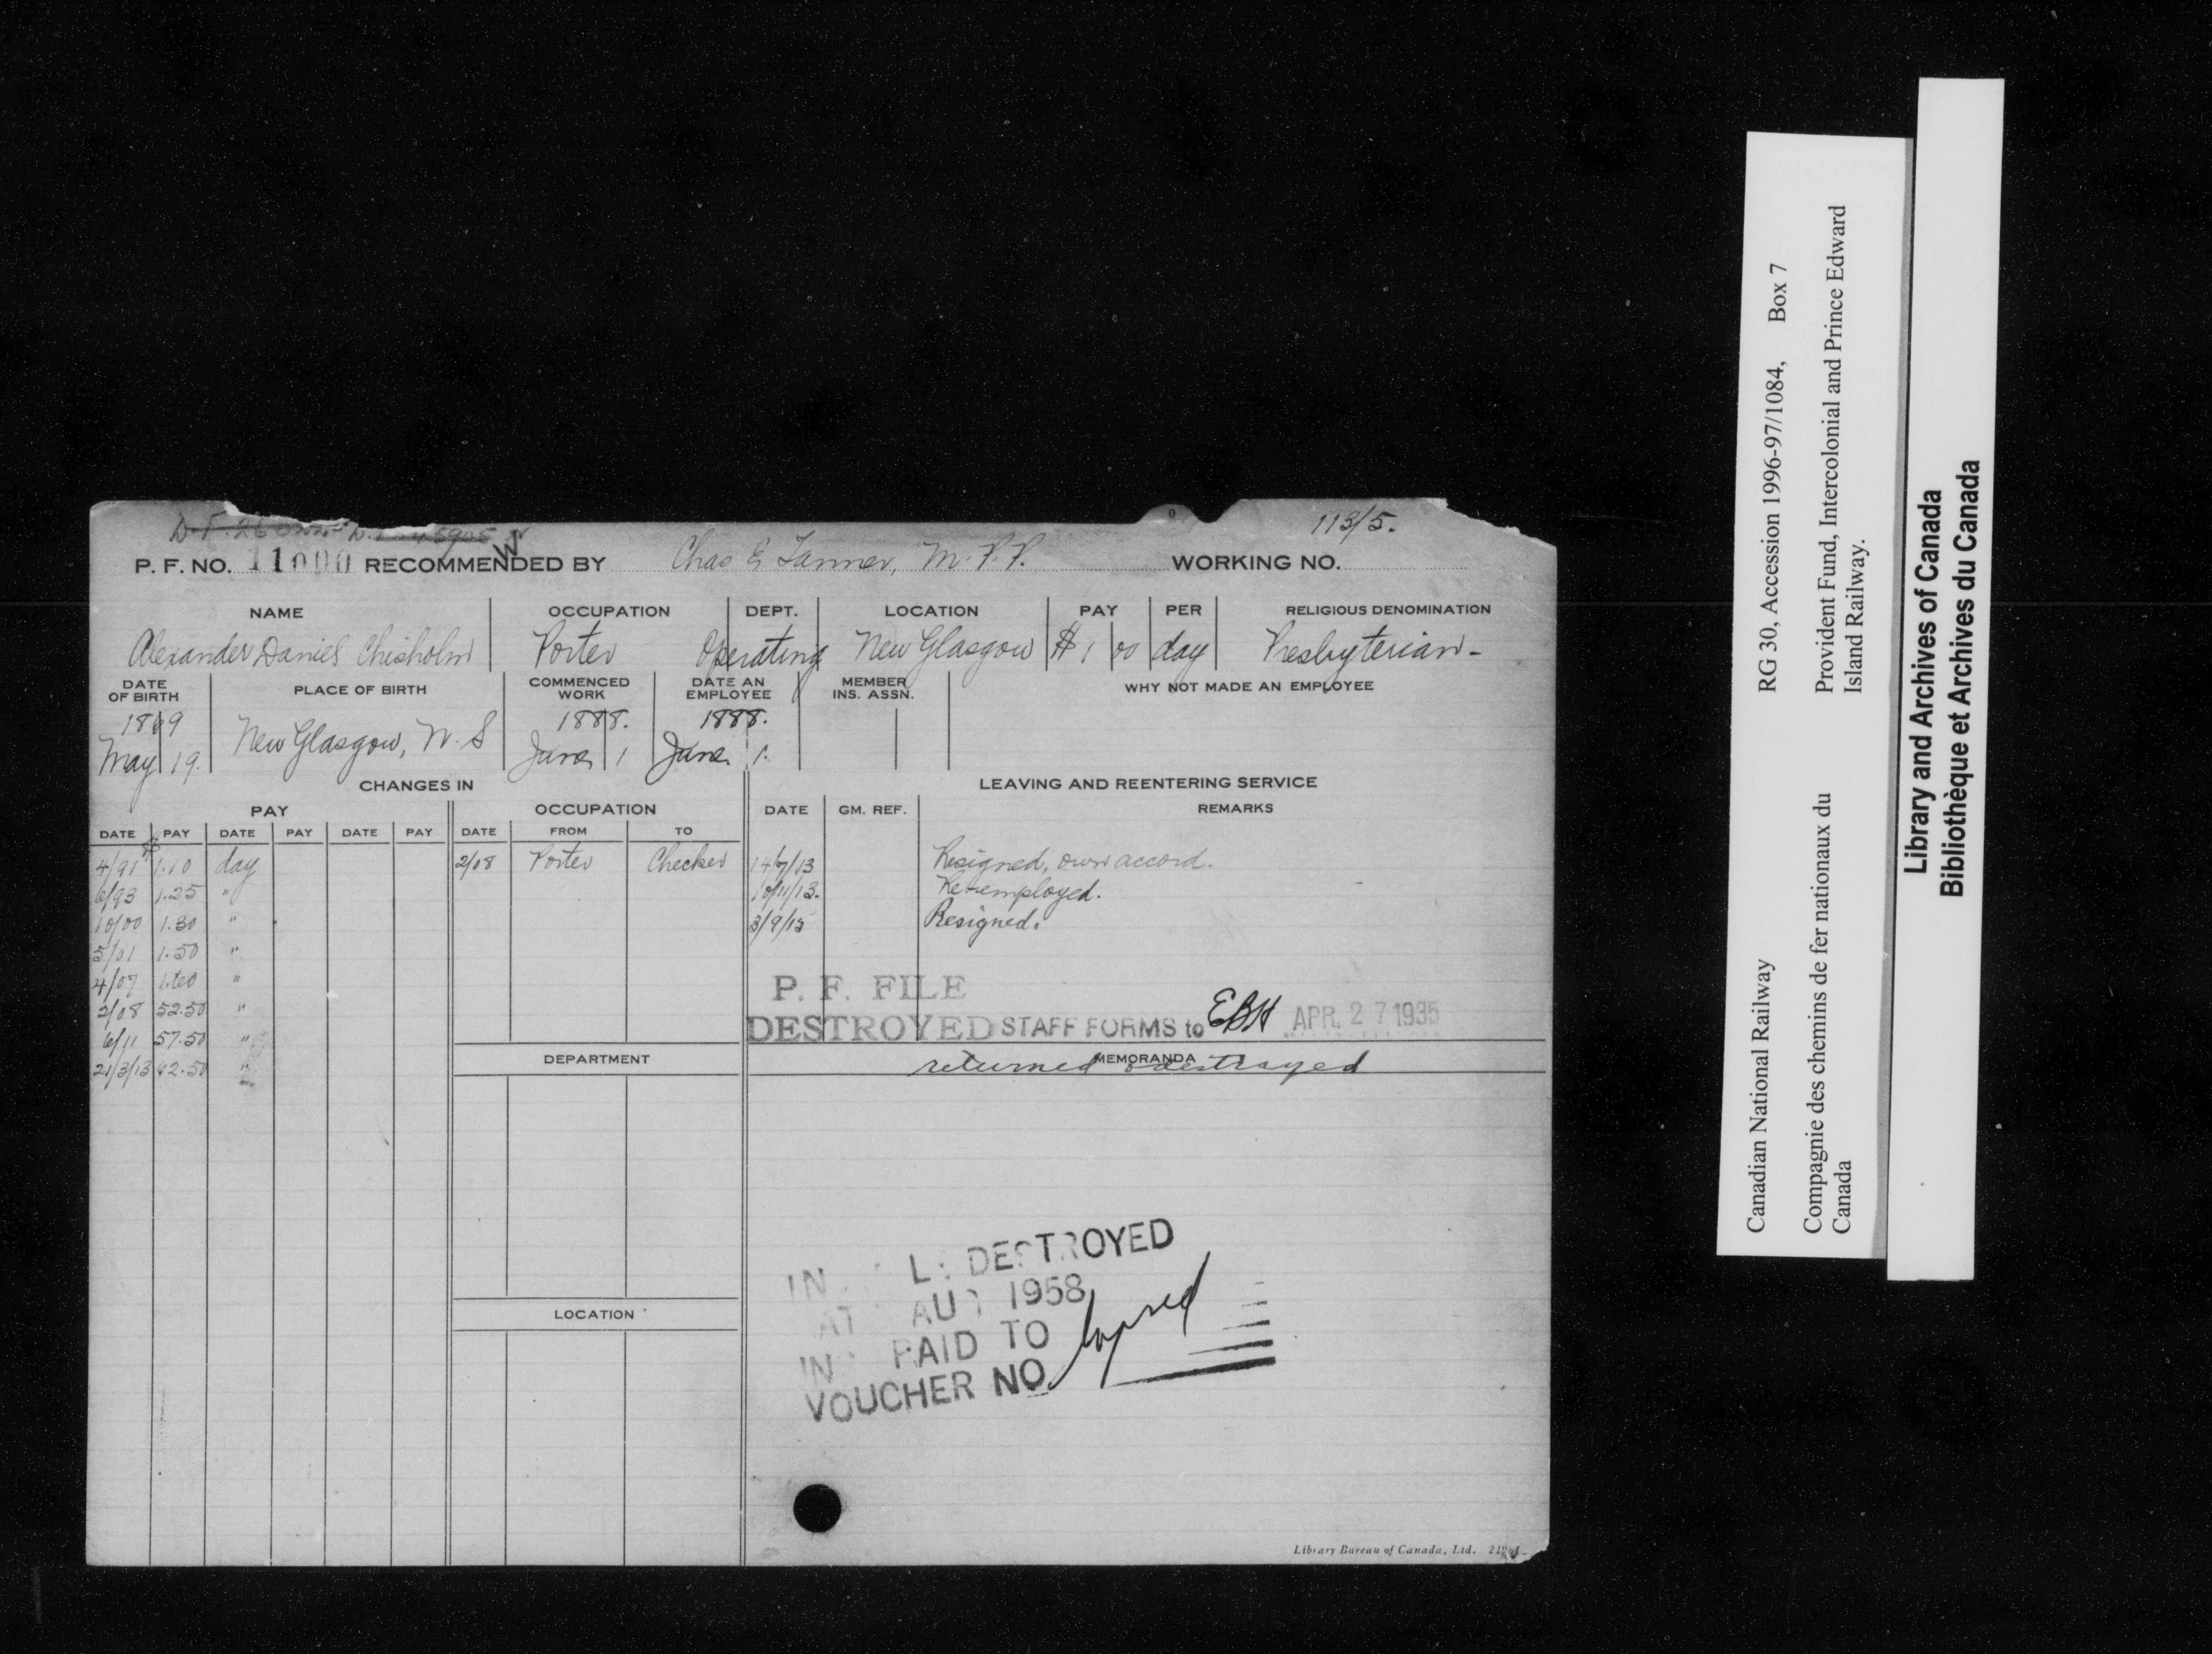 113/5.
P. F. NO. 11000 RECOMMENDED BY Chas E Tanner, M.P.P. WORKING NO.
NAME OCCUPATION DEPT. LOCATION PAY PER RELIGIOUS DENOMINATION
Alexander Daniel Chisholm Porter Operating New Glasgow $1 00 day Presbyterian -
DATE OF BIRTH PLACE OF BIRTH COMMENCED WORK DATE AN EMPLOYEE MEMBER INS. ASSN. WHY NOT MADE AN EMPLOYEE
1869 1888. 1888.
May 19. New Glasgow, N. S June 1 June 1.
CHANGES IN LEAVING AND REENTERING SERVICE
PAY OCCUPATION DATE GM. REF. REMARKS
DATE PAY DATE PAY DATE PAY DATE FROM TO
4/91 $1.10 day 2/08 Porter Checker 14/7/13 Resigned, own accord.
6/93 1.25 " 10/11/13. Re-employed.
10/00 1.30 " 3/9/15 Resigned.
5/01 1.50 "
4/07 1.60 "
2/08 52.50 "
6/11 57.50 "
21/3/13 62.50 "
P. F. FILE
DESTROYED STAFF FORMS to EBH APR. 27 1935
DEPARTMENT MEMORANDA
returned & destroyed
LOCATION
DESTROYED
1958
PAID TO
VOUCHER NO. lapsed
Library Bureau of Canada, Ltd.
Canadian National Railway RG 30, Accession 1996-97/1084, Box 7
Compagnie des chemins de fer nationaux du Canada
Provident Fund, Intercolonial and Prince Edward Island Railway.
Library and Archives of Canada
Bibliothèque et Archives du Canada